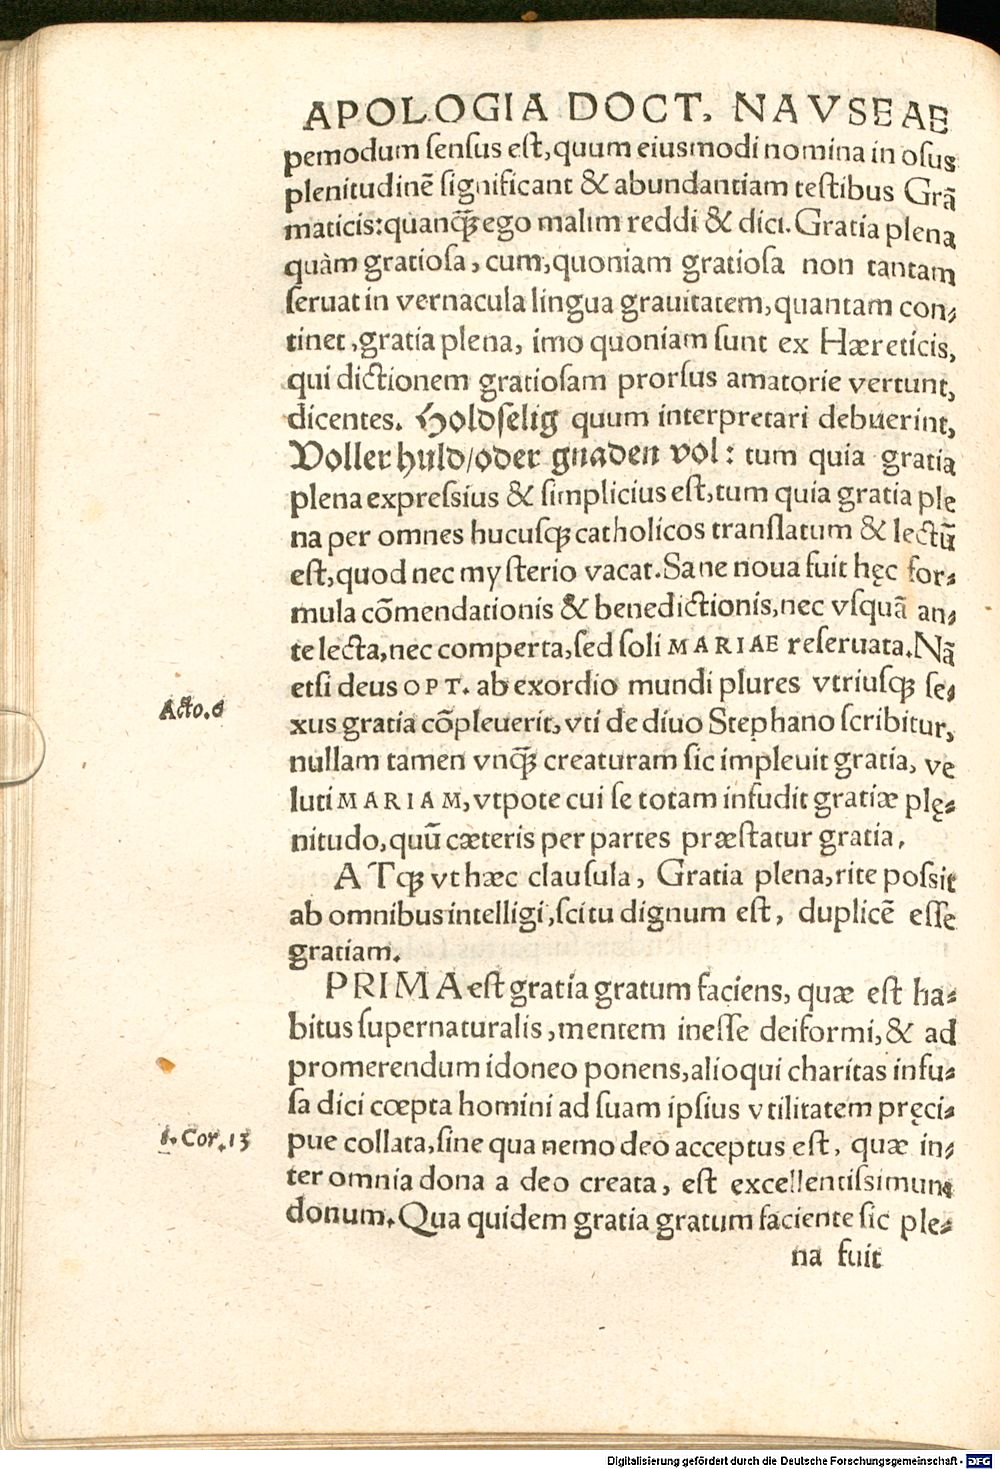 APOLOGIA DOCT. NAVSEAE
pemodum ſenſus eſt, quum eiusmodi nomina in oſus
plenitudinē ſignificant & abundantiam teſtibus Grā
maticis: quanq̃ ego malim reddi & dici. Gratia plena
quàm gratioſa, cum, quoniam gratioſa non tantam
ſeruat in vernacula lingua grauitatem, quantam con⸗
tinet, gratia plena, imo quoniam ſunt ex Hæreticis,
qui dictionem gratioſam prorſus amatorie vertunt,
dicentes. Holdſelig quum interpretari debuerint,
Voller huld/oder gnaden vol: tum quia gratia
plena expreſsius & ſimplicius eſt, tum quia gratia ple
na per omnes hucuſq; catholicos tranſlatum & lectū
eſt, quod nec myſterio vacat. Sane noua fuit hęc for⸗
mula cōmendationis & benedictionis, nec vſquā an⸗
te lecta, nec comperta, ſed ſoli MARIAE reſeruata. Nā
etſi deus OPT. ab exordio mundi plures vtriuſq; ſe⸗
Acto.6
xus gratia cōpleuerit, vti de diuo Stephano ſcribitur,
nullam tamen vnq̃ creaturam ſic impleuit gratia, ve
luti MARIAM, vtpote cui ſe totam infudit gratiæ plę⸗
nitudo, quū cæteris per partes præſtatur gratia.
ATq; vt hæc clauſula, Gratia plena, rite poſsit
ab omnibus intelligi, ſcitu dignum eſt, duplicē eſſe
gratiam.
PRIMA eſt gratia gratum faciens, quæ eſt ha⸗
bitus ſupernaturalis, mentem ineſſe deiformi, & ad
promerendum idoneo ponens, alioqui charitas infu⸗
ſa dici cœpta homini ad ſuam ipſius vtilitatem pręci⸗
1. Cor. 13
pue collata, ſine qua nemo deo acceptus eſt, quæ in⸗
ter omnia dona a deo creata, eſt excellentiſsimum
donum. Qua quidem gratia gratum faciente ſic ple⸗
na fuit
Digitalisierung gefördert durch die Deutsche Forschungsgemeinschaft - DFG